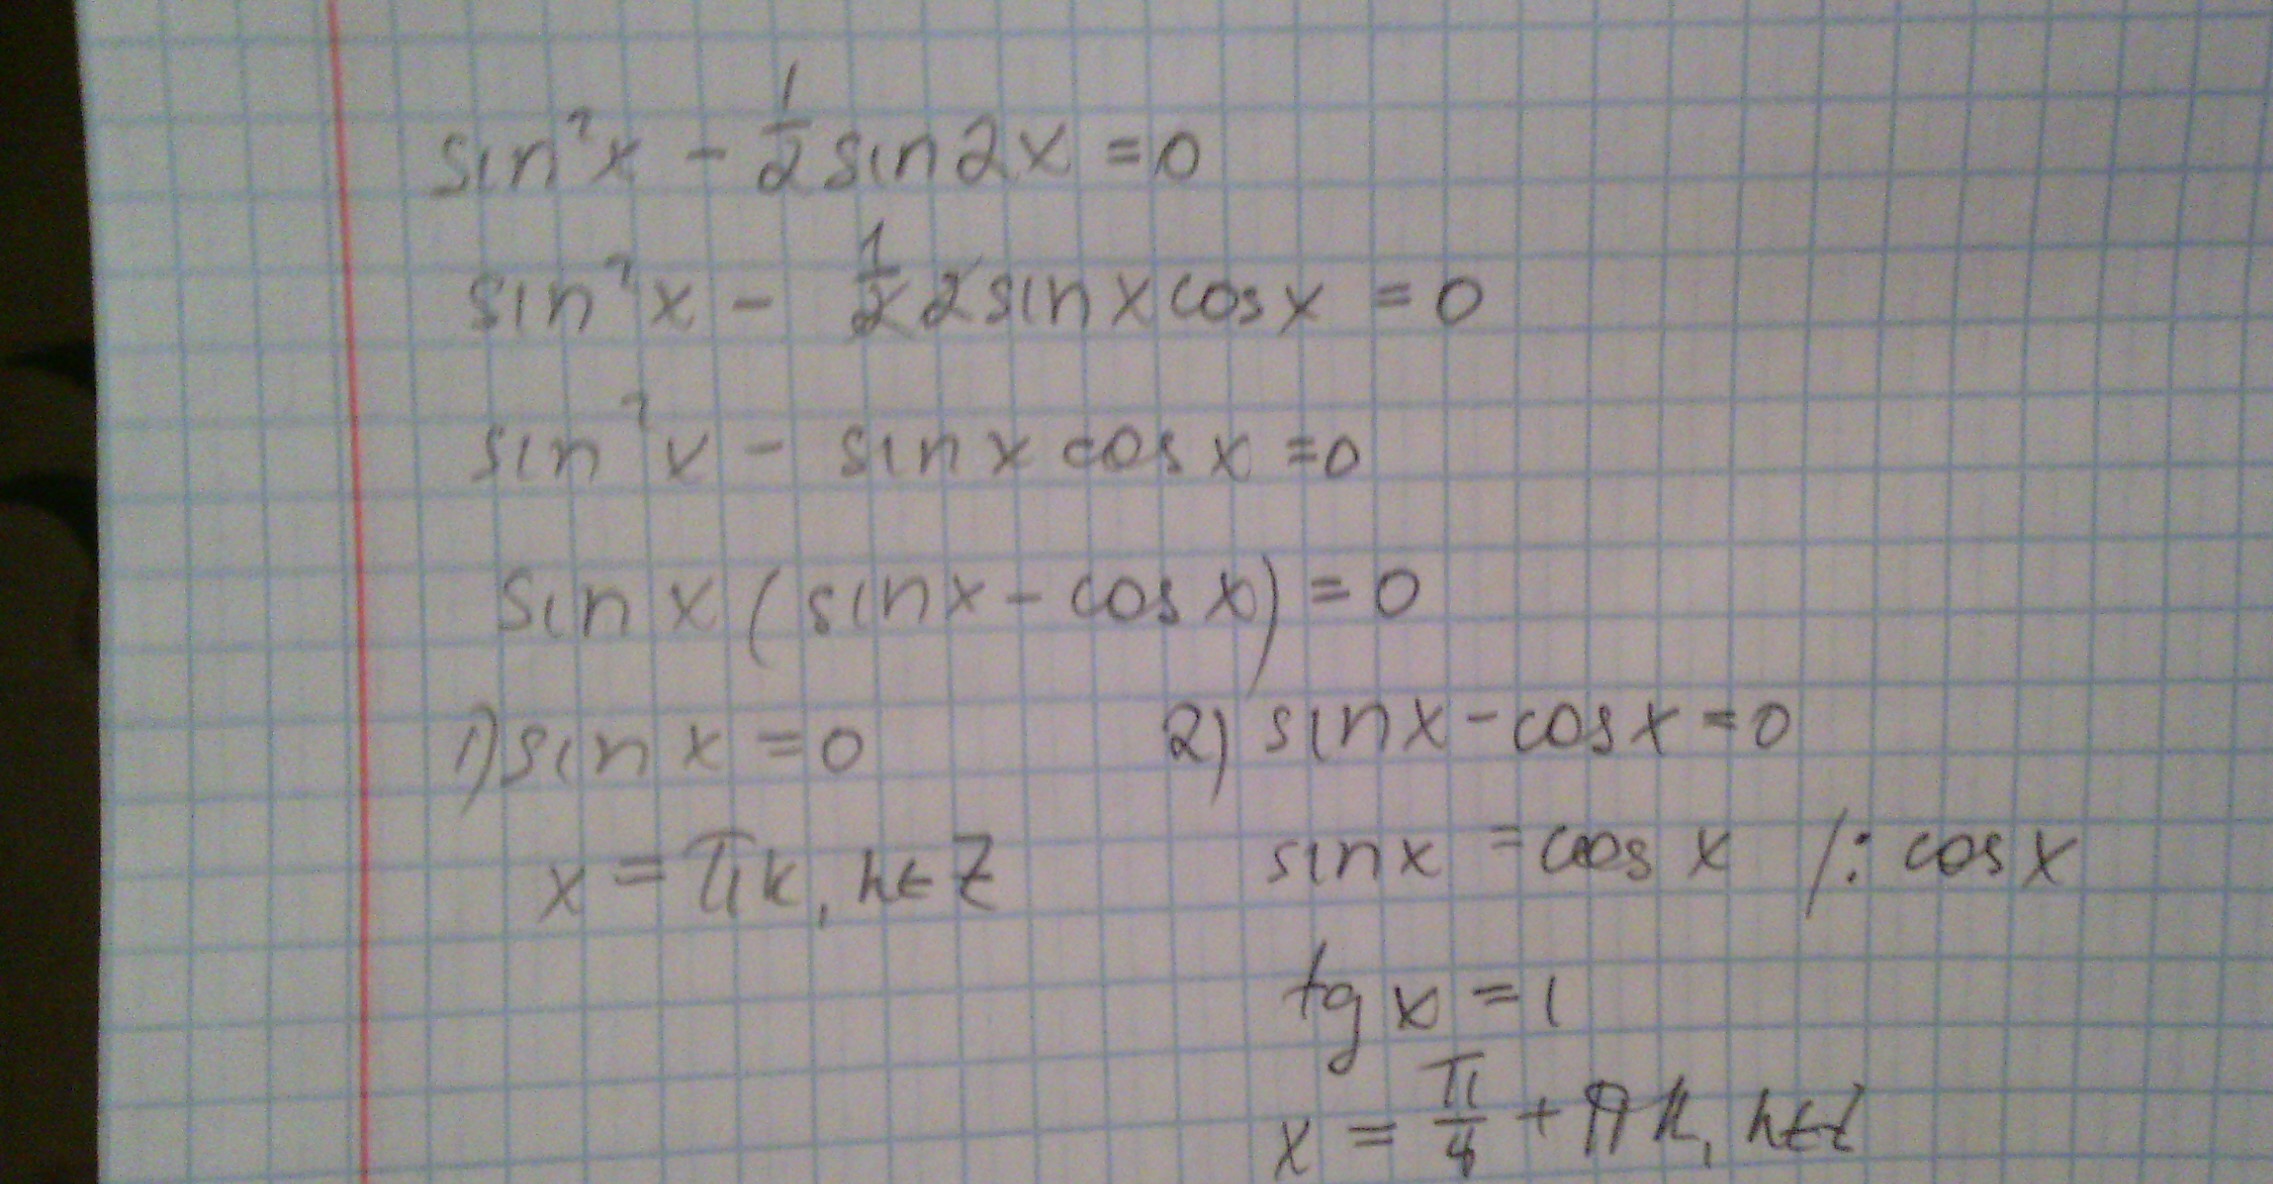 sin²x - 1/2 sin2x = 0
sin²x - 1/2 2sinxcosx = 0
sin²x - sinx cosx = 0
sinx(sinx - cosx) = 0
1) sinx = 0
x = πk, k∈Z
2) sinx - cosx = 0
sinx = cosx /: cosx
tgx = 1
x = π/4 + πk, k∈Z